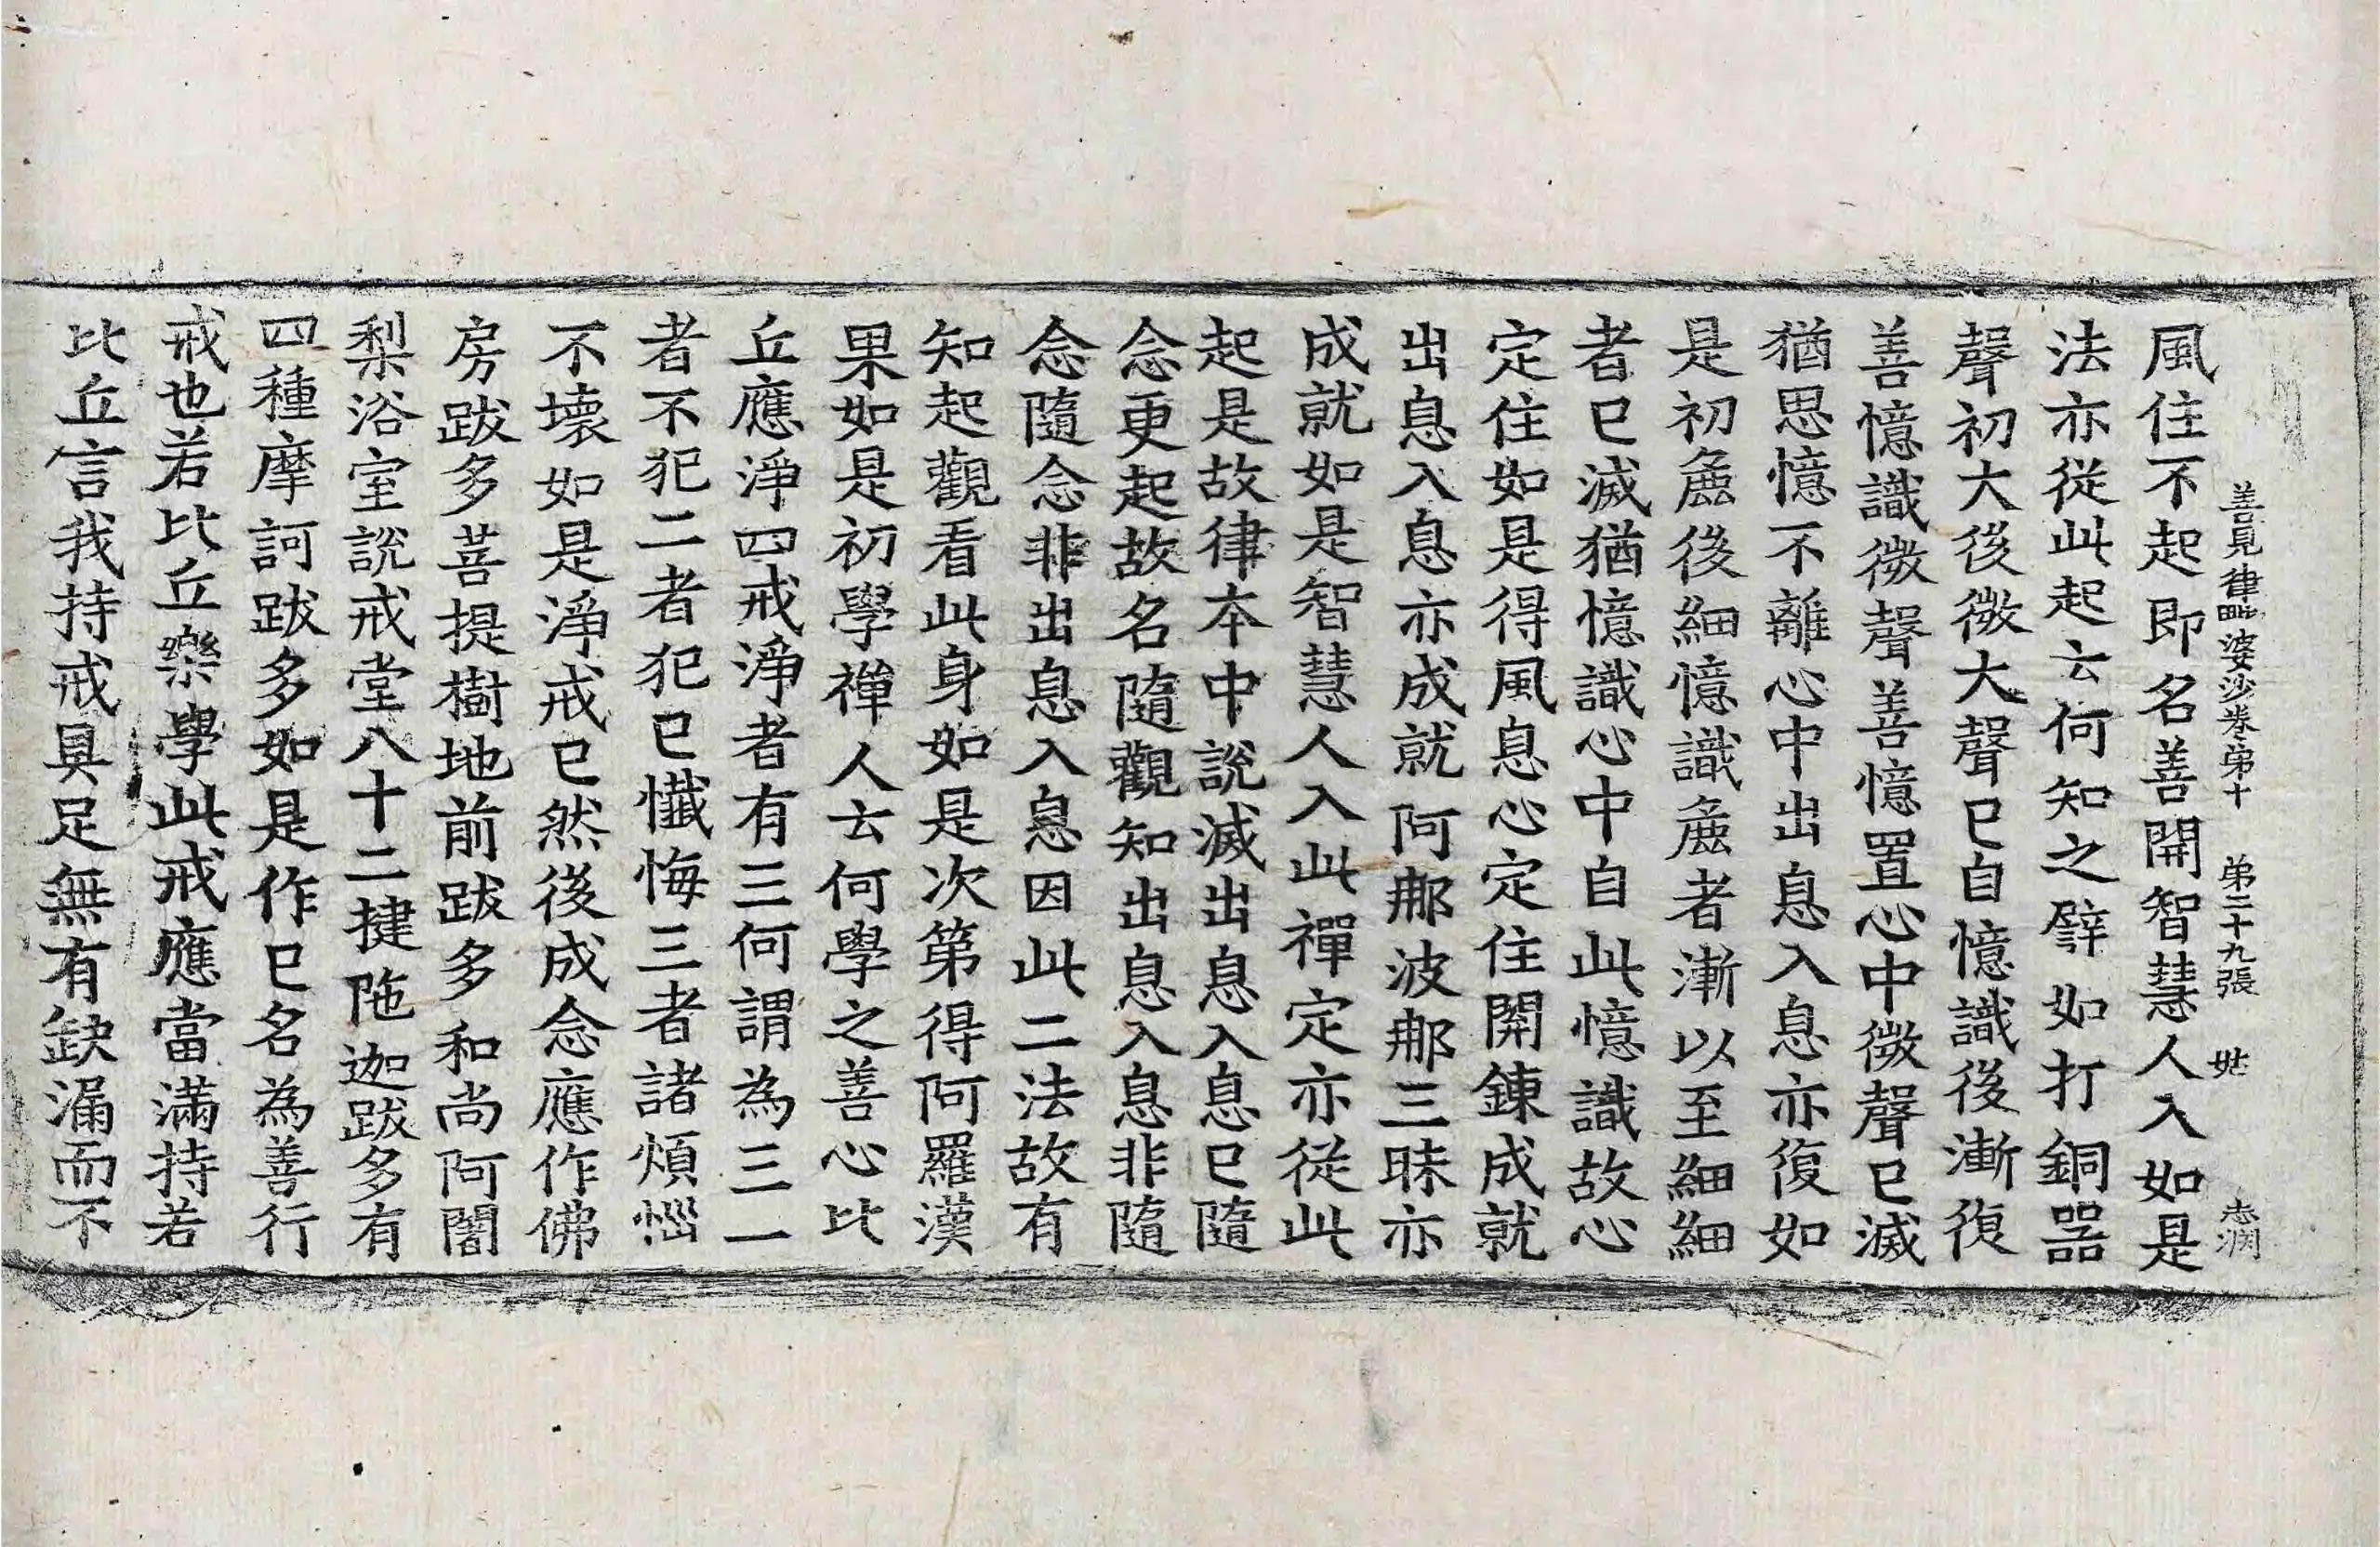 善見律毗婆沙卷第十　第二十九張　姑　志淵
風住不起即名善開智慧人入如是
法亦從此起云何知之譬如打銅器
聲初大後微大聲已自憶識後漸復
善憶識微聲善憶置心中微聲已滅
猶思憶不離心中出息入息亦復如
是初麁後細憶識麁者漸以至細細
者已滅猶憶識心中自此憶識故心
定住如是得風息心定住開鍊成就
出息入息亦成就阿那波那三昧亦
成就如是智慧人入此禪定亦從此
起是故律本中說滅出息入息已隨
念更起故名隨觀知出息入息非隨
念隨念非出息入息因此二法故有
知起觀看此身如是次第得阿羅漢
果如是初學禪人云何學之善心比
丘應淨四戒淨者有三何謂為三一
者不犯二者犯已懺悔三者諸煩惱
不壞如是淨戒已然後成念應作佛
房跋多菩提樹地前跋多和尚阿闍
梨浴室說戒堂八十二揵陁迦跋多有
四種摩訶跋多如是作已名為善行
戒也若比丘樂學此戒應當滿持若
比丘言我持戒具足無有缺漏而不